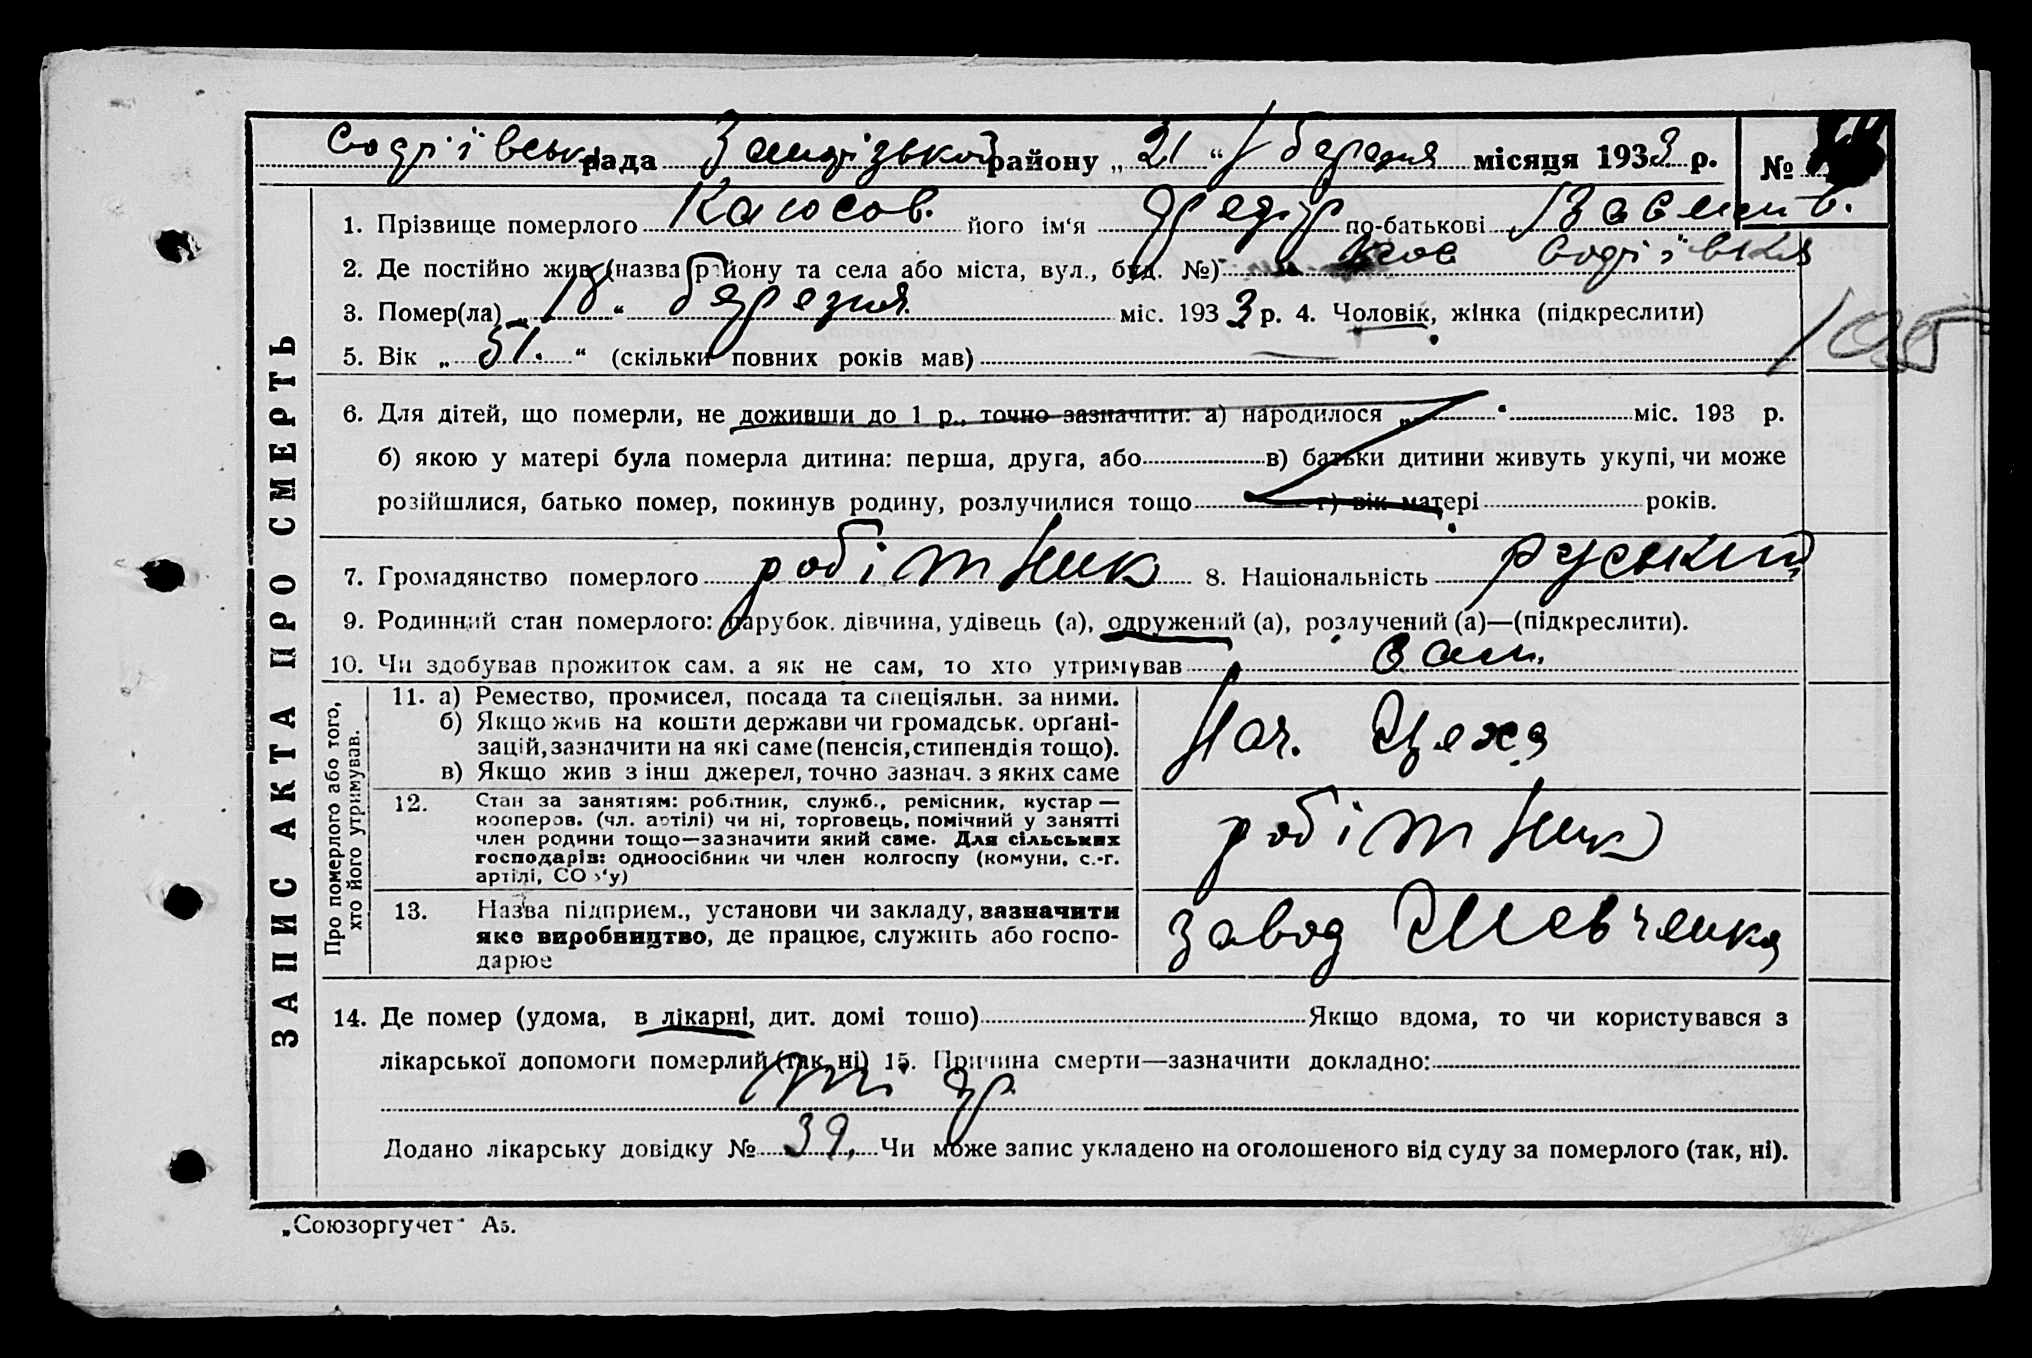 рада району „ 21 “ березня місяця 1933 р. №
1. Прізвище померлого його ім'я Федір по-батькові
2. Де постійно жив (назва району та села або міста, вул., буд. №)
3. Помер(ла) „ 18 “ березня міс. 1933 р. 4. Чоловік, жінка (підкреслити)
5. Вік „ 51. “ (скільки повних років мав)
105
6. Для дітей, що померли, не доживши до 1 р., точно зазначити: а) народилося „ “ міс. 193 р.
б) якою у матері була померла дитина: перша, друга, або в) батьки дитини живуть укупі, чи може
розійшлися, батько помер, покинув родину, розлучилися тощо г) вік матері років.
7. Громадянство померлого робітник 8. Національність руський
9. Родинний стан померлого: парубок, дівчина, удівець (а), одружений (а), розлучений (а)—(підкреслити).
10. Чи здобував прожиток сам, а як не сам, то хто утримував сам.
ЗАПИС АКТА ПРО СМЕРТЬ
Про померлого або того,
хто його утримував.
11. а) Ремество, промисел, посада та спеціяльн. за ними.
б) Якщо жив на кошти держави чи громадськ. орґані-
зацій, зазначити на які саме (пенсія, стипендія тощо).
в) Якщо жив з інш джерел, точно зазнач. з яких саме
Нач. Цеха
12. Стан за заняттям: робітник, служб., ремісник, кустар—
кооперов. (чл. артілі) чи ні, торговець, помічний у занятті
член родини тощо—зазначити який саме. Для сільських
господарів: одноосібник чи член колгоспу (комуни, с.-г.
артілі, СО у)
робітник
13. Назва підприєм., установи чи закладу, зазначити
яке виробництво, де працює, служить або госпо-
дарює
завод Шевченка
14. Де помер (удома, в лікарні, дит. домі тощо) Якщо вдома, то чи користувався з
лікарської допомоги померлий (так, ні) 15. Причина смерти—зазначити докладно:
Додано лікарську довідку № 39, Чи може запис укладено на оголошеного від суду за померлого (так, ні).
„Союзоргучет“ А5.